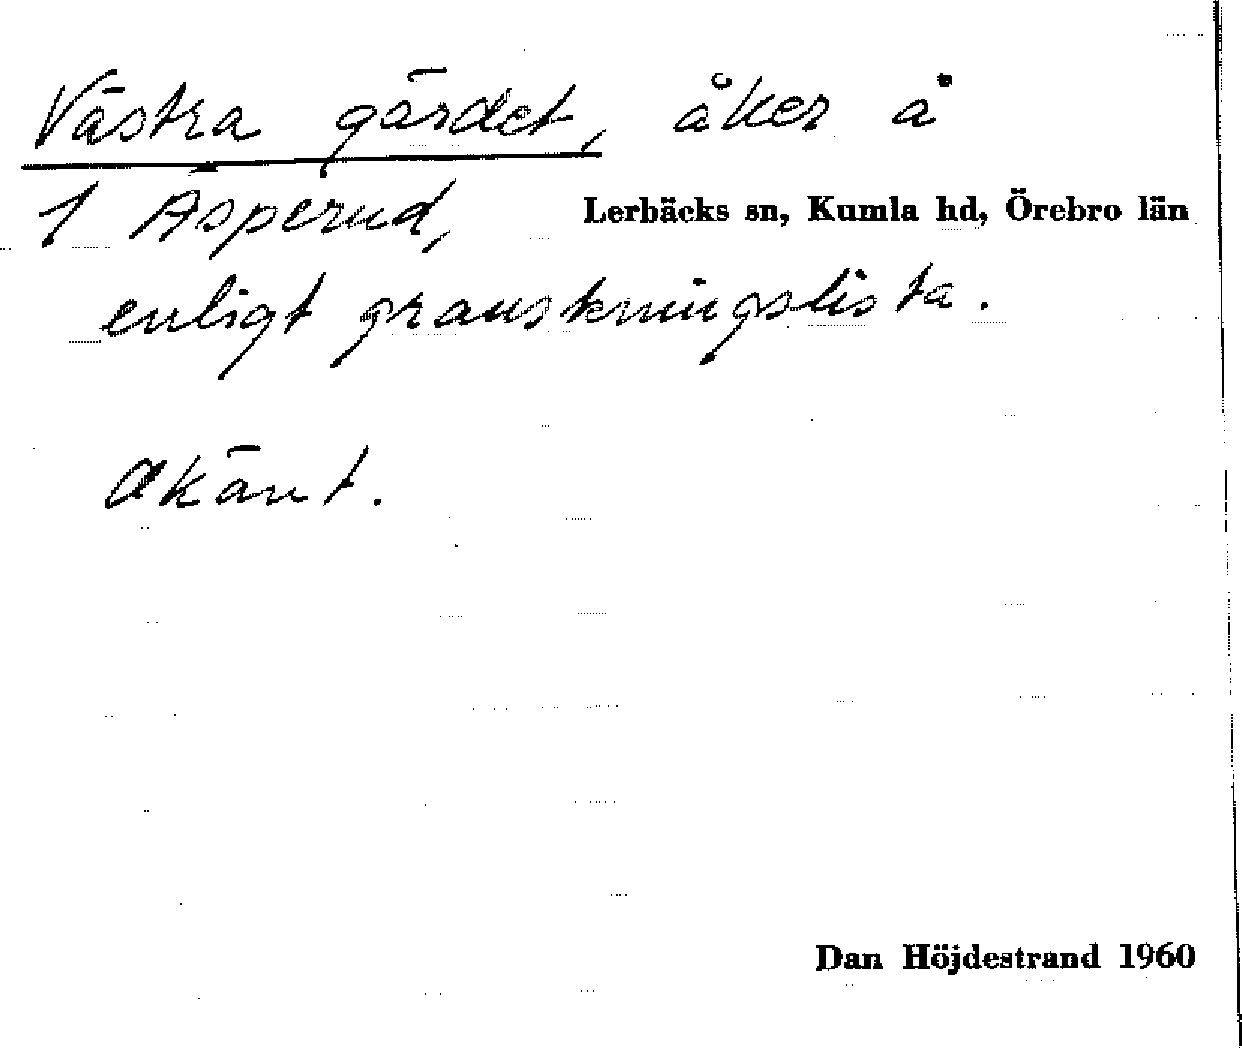 Västra gärdet, åker å
1 Äsperud,
Lerbäcks sn, Kumla hd, Örebro län
enligt granskningslista.
Okänt.
Dan Höjdestrand 1960